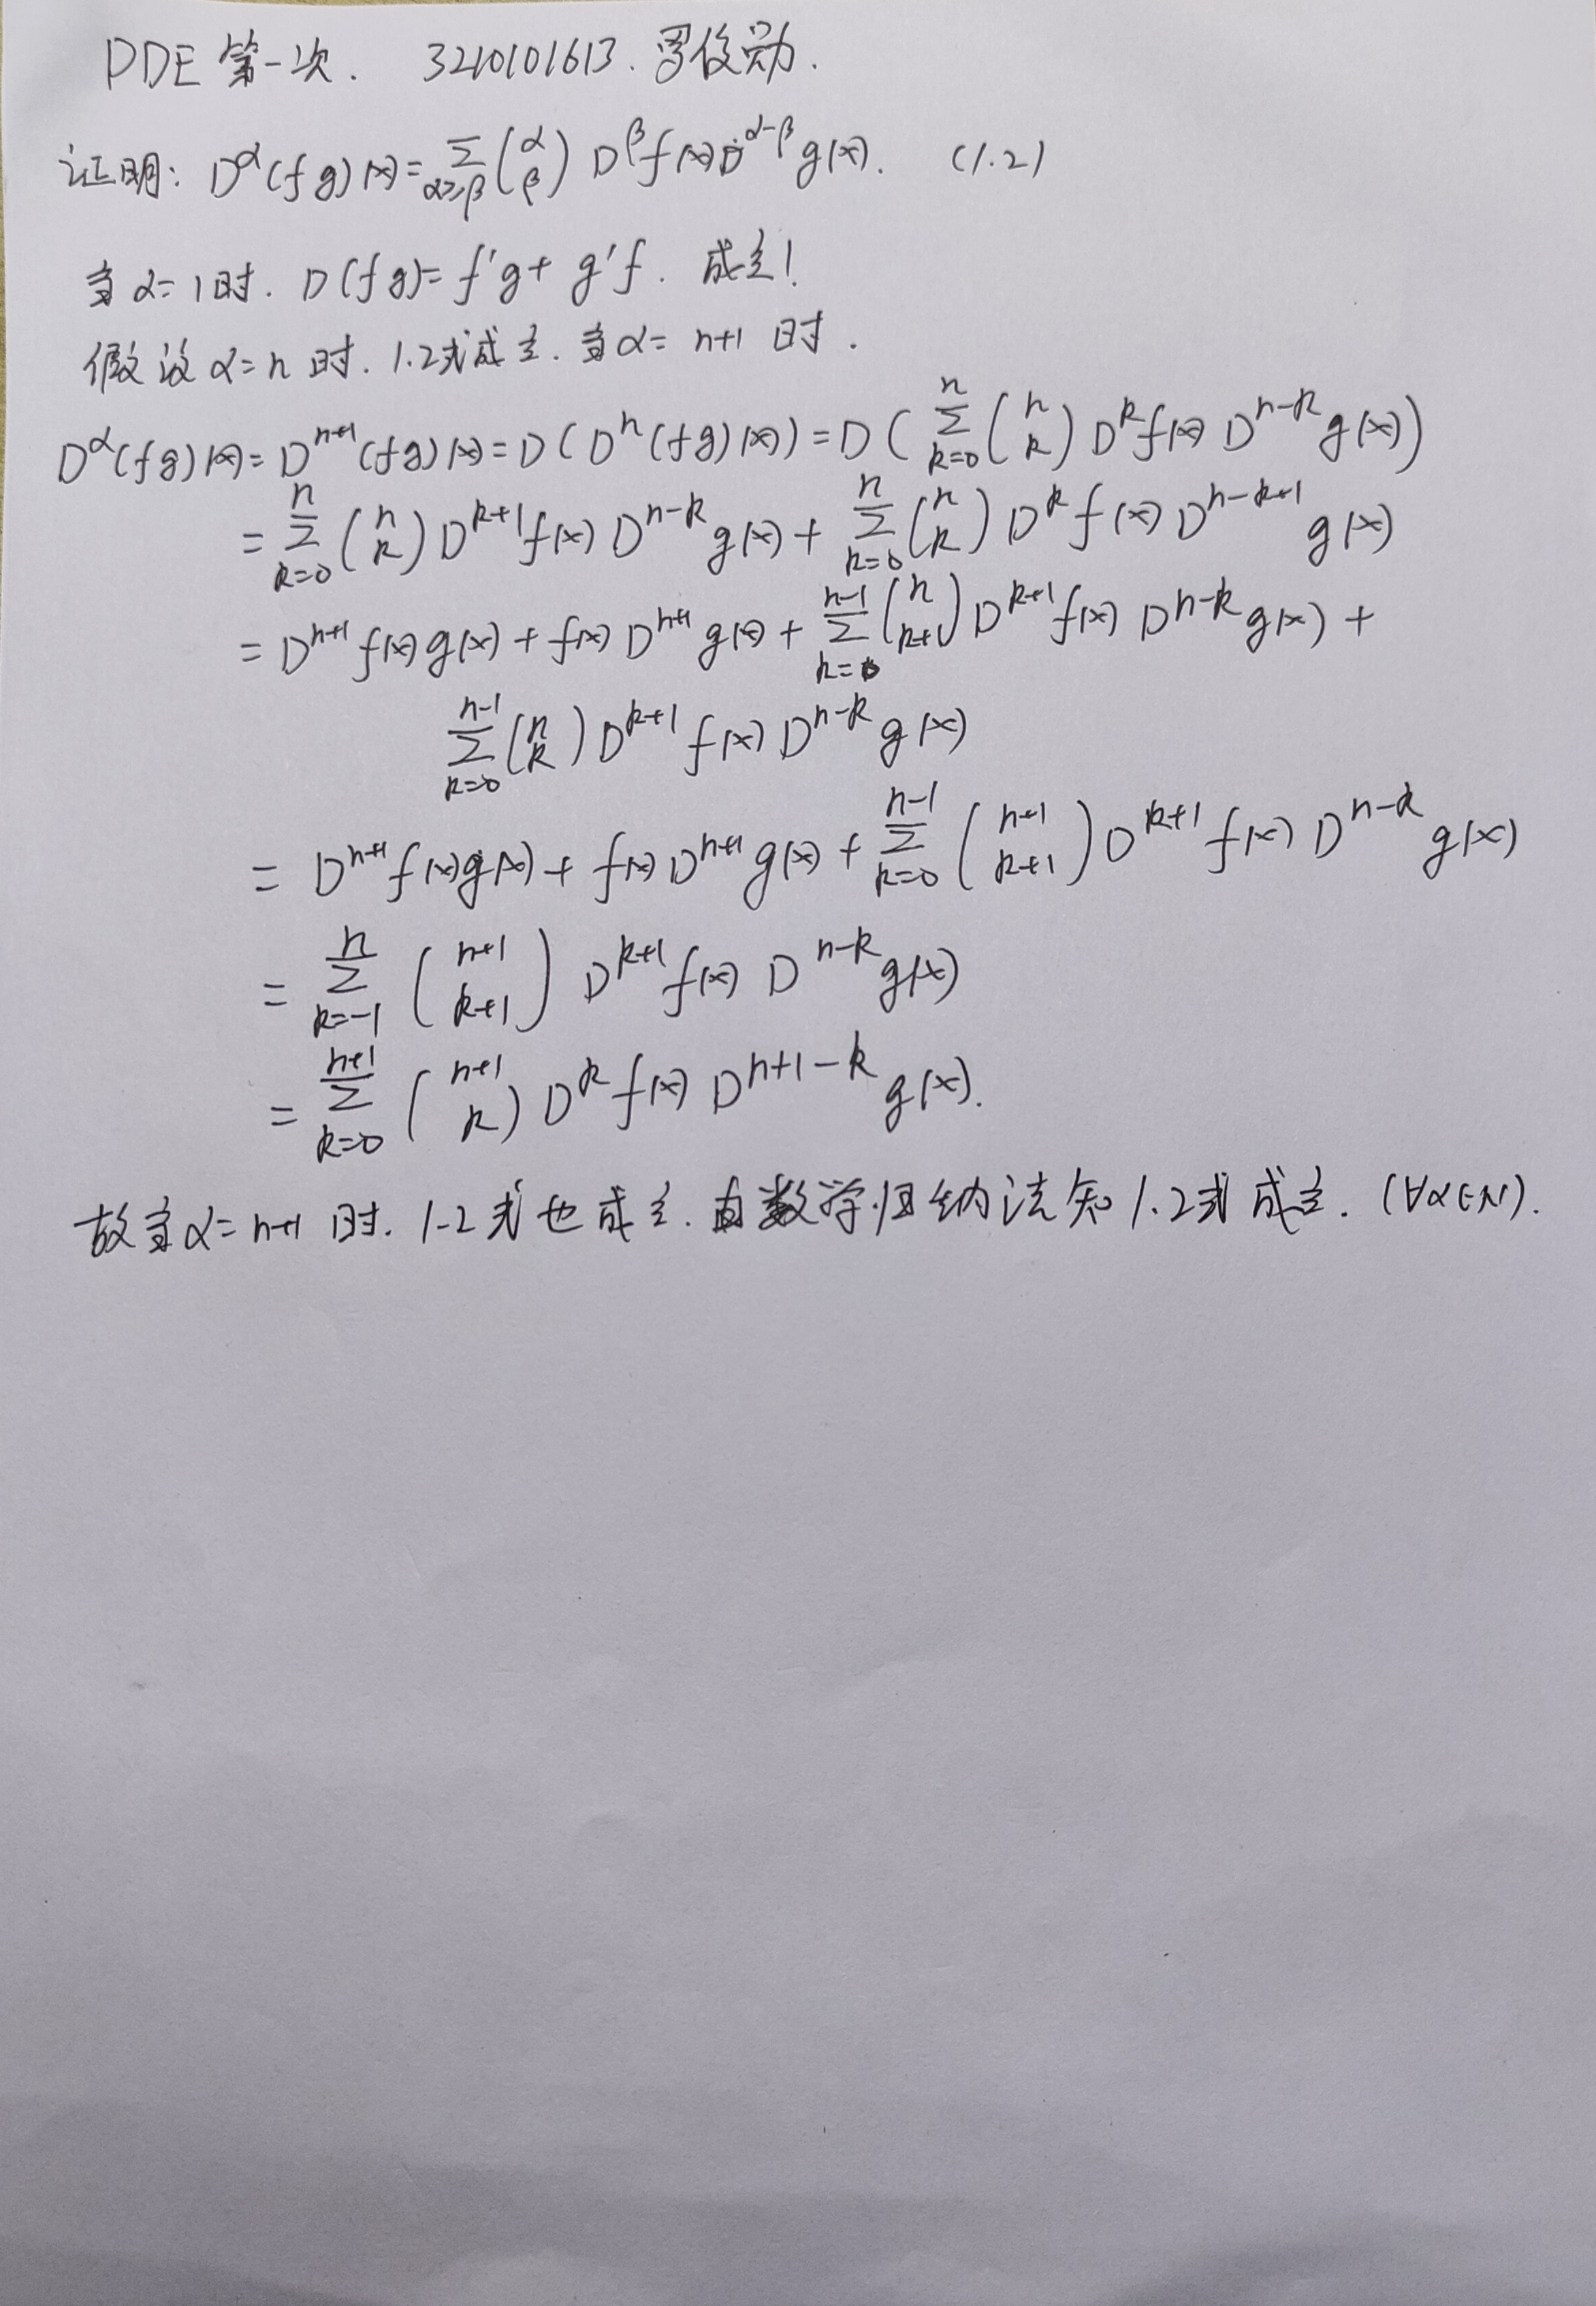 PDE 第一次. 3210101613. 罗俊勋.
证明: D^α(fg)(x) = Σ_{α≥β} (α β) D^β f(x) D^{α-β} g(x). (1.2)
当 α=1 时. D(fg) = f'g + g'f. 成立!
假设 α=n 时. 1.2式成立. 当 α= n+1 时.
D^α(fg)(x) = D^{n+1}(fg)(x) = D(D^n(fg)(x)) = D(Σ_{k=0}^{n} (n k) D^k f(x) D^{n-k} g(x))
= Σ_{k=0}^{n} (n k) D^{k+1} f(x) D^{n-k} g(x) + Σ_{k=0}^{n} (n k) D^k f(x) D^{n-k+1} g(x)
= D^{n+1} f(x) g(x) + f(x) D^{n+1} g(x) + Σ_{k=0}^{n-1} (n k+1) D^{k+1} f(x) D^{n-k} g(x) +
Σ_{k=0}^{n-1} (n k) D^{k+1} f(x) D^{n-k} g(x)
= D^{n+1} f(x) g(x) + f(x) D^{n+1} g(x) + Σ_{k=0}^{n-1} (n+1 k+1) D^{k+1} f(x) D^{n-k} g(x)
= Σ_{k=-1}^{n} (n+1 k+1) D^{k+1} f(x) D^{n-k} g(x)
= Σ_{k=0}^{n+1} (n+1 k) D^k f(x) D^{n+1-k} g(x).
故当 α= n+1 时. 1.2式也成立. 由数学归纳法知 1.2式成立. (∀α∈N).